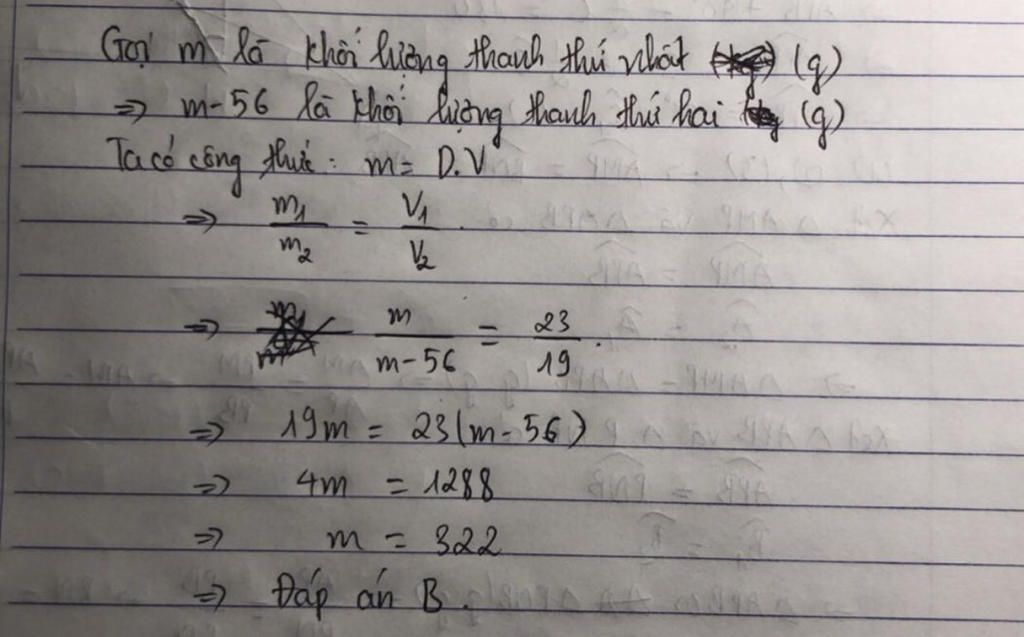 Gọi m là khối lượng thanh thứ nhất (g)
=> m - 56 là khối lượng thanh thứ hai (g)
Ta có công thức : m = D.V
=> m1/m2 = V1/V2 .
=> m/(m - 56) = 23/19 .
=> 19m = 23(m - 56)
=> 4m = 1288
=> m = 322
=> Đáp án B .